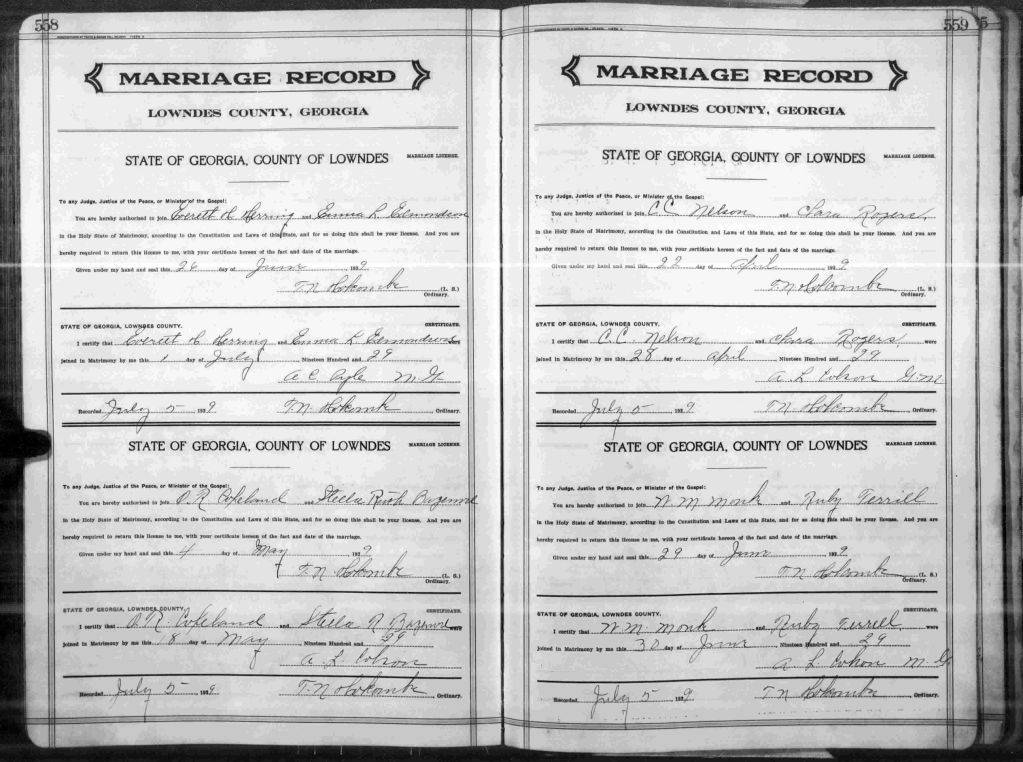 558
MARRIAGE RECORD
LOWNDES COUNTY, GEORGIA
STATE OF GEORGIA, COUNTY OF LOWNDES MARRIAGE LICENSE.
To any Judge, Justice of the Peace, or Minister of the Gospel:
You are hereby authorized to join Everett H Herring and Emma L Edmondson
in the Holy State of Matrimony, according to the Constitution and Laws of this State, and for so doing this shall be your license. And you are
hereby required to return this license to me, with your certificate hereon of the fact and date of the marriage.
Given under my hand and seal this 26 day of June , 1929
T. N. Holcombe (L. S.)
Ordinary.
STATE OF GEORGIA, LOWNDES COUNTY. CERTIFICATE.
I certify that Everett H Herring and Emma L Edmondson were
joined in Matrimony by me this 1 day of July Nineteen Hundred and 29
A C Pyle M.G.
Recorded July 5 1929 T. N. Holcombe Ordinary.
STATE OF GEORGIA, COUNTY OF LOWNDES MARRIAGE LICENSE.
To any Judge, Justice of the Peace, or Minister of the Gospel:
You are hereby authorized to join O. R Copeland and Stella Ruth Bazemore
in the Holy State of Matrimony, according to the Constitution and Laws of this State, and for so doing this shall be your license. And you are
hereby required to return this license to me, with your certificate hereon of the fact and date of the marriage.
Given under my hand and seal this 4 day of May 1929
T. N. Holcombe (L. S.)
Ordinary.
STATE OF GEORGIA, LOWNDES COUNTY. CERTIFICATE.
I certify that O. R. Copeland and Stella R Bazemore were
joined in Matrimony by me this 18 day of May Nineteen Hundred and 29
A. L Colson
Recorded July 5 1929 T. N Holcombe Ordinary.
559 5
MARRIAGE RECORD
LOWNDES COUNTY, GEORGIA
STATE OF GEORGIA, COUNTY OF LOWNDES MARRIAGE LICENSE.
To any Judge, Justice of the Peace, or Minister of the Gospel:
You are hereby authorized to join C.C. Nelson and Clara Rogers,
in the Holy State of Matrimony, according to the Constitution and Laws of this State, and for so doing this shall be your license. And you are
hereby required to return this license to me, with your certificate hereon of the fact and date of the marriage.
Given under my hand and seal this 22 day of April , 1929
T. N Holcombe (L. S.)
Ordinary.
STATE OF GEORGIA, LOWNDES COUNTY. CERTIFICATE.
I certify that C.C. Nelson and Clara Rogers, were
joined in Matrimony by me this 28 day of April Nineteen Hundred and 29
A. L Colson G.M
Recorded July 5 1929 T N Holcombe Ordinary.
STATE OF GEORGIA, COUNTY OF LOWNDES MARRIAGE LICENSE.
To any Judge, Justice of the Peace, or Minister of the Gospel:
You are hereby authorized to join W M Monk and Ruby Terrell
in the Holy State of Matrimony, according to the Constitution and Laws of this State, and for so doing this shall be your license. And you are
hereby required to return this license to me, with your certificate hereon of the fact and date of the marriage.
Given under my hand and seal this 29 day of June , 1929
T. N Holcombe (L. S.)
Ordinary.
STATE OF GEORGIA, LOWNDES COUNTY. CERTIFICATE.
I certify that W.M. Monk and Ruby Terrell were
joined in Matrimony by me this 30 day of June Nineteen Hundred and 29
A. L. Colson M. G
Recorded July 5 1929 T N Holcombe Ordinary.